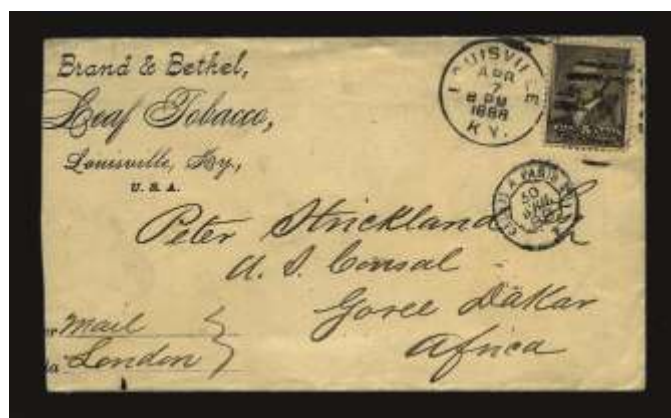 Brand & Bethel,
Leaf Tobacco,
Louisville, Ky.,
U. S. A.
LOUISVILLE
APR
7
8 PM
1888
KY.
A PARIS
30
Peter Strickland
U. S. Consal
Goree Dakar
Africa
Mail
London